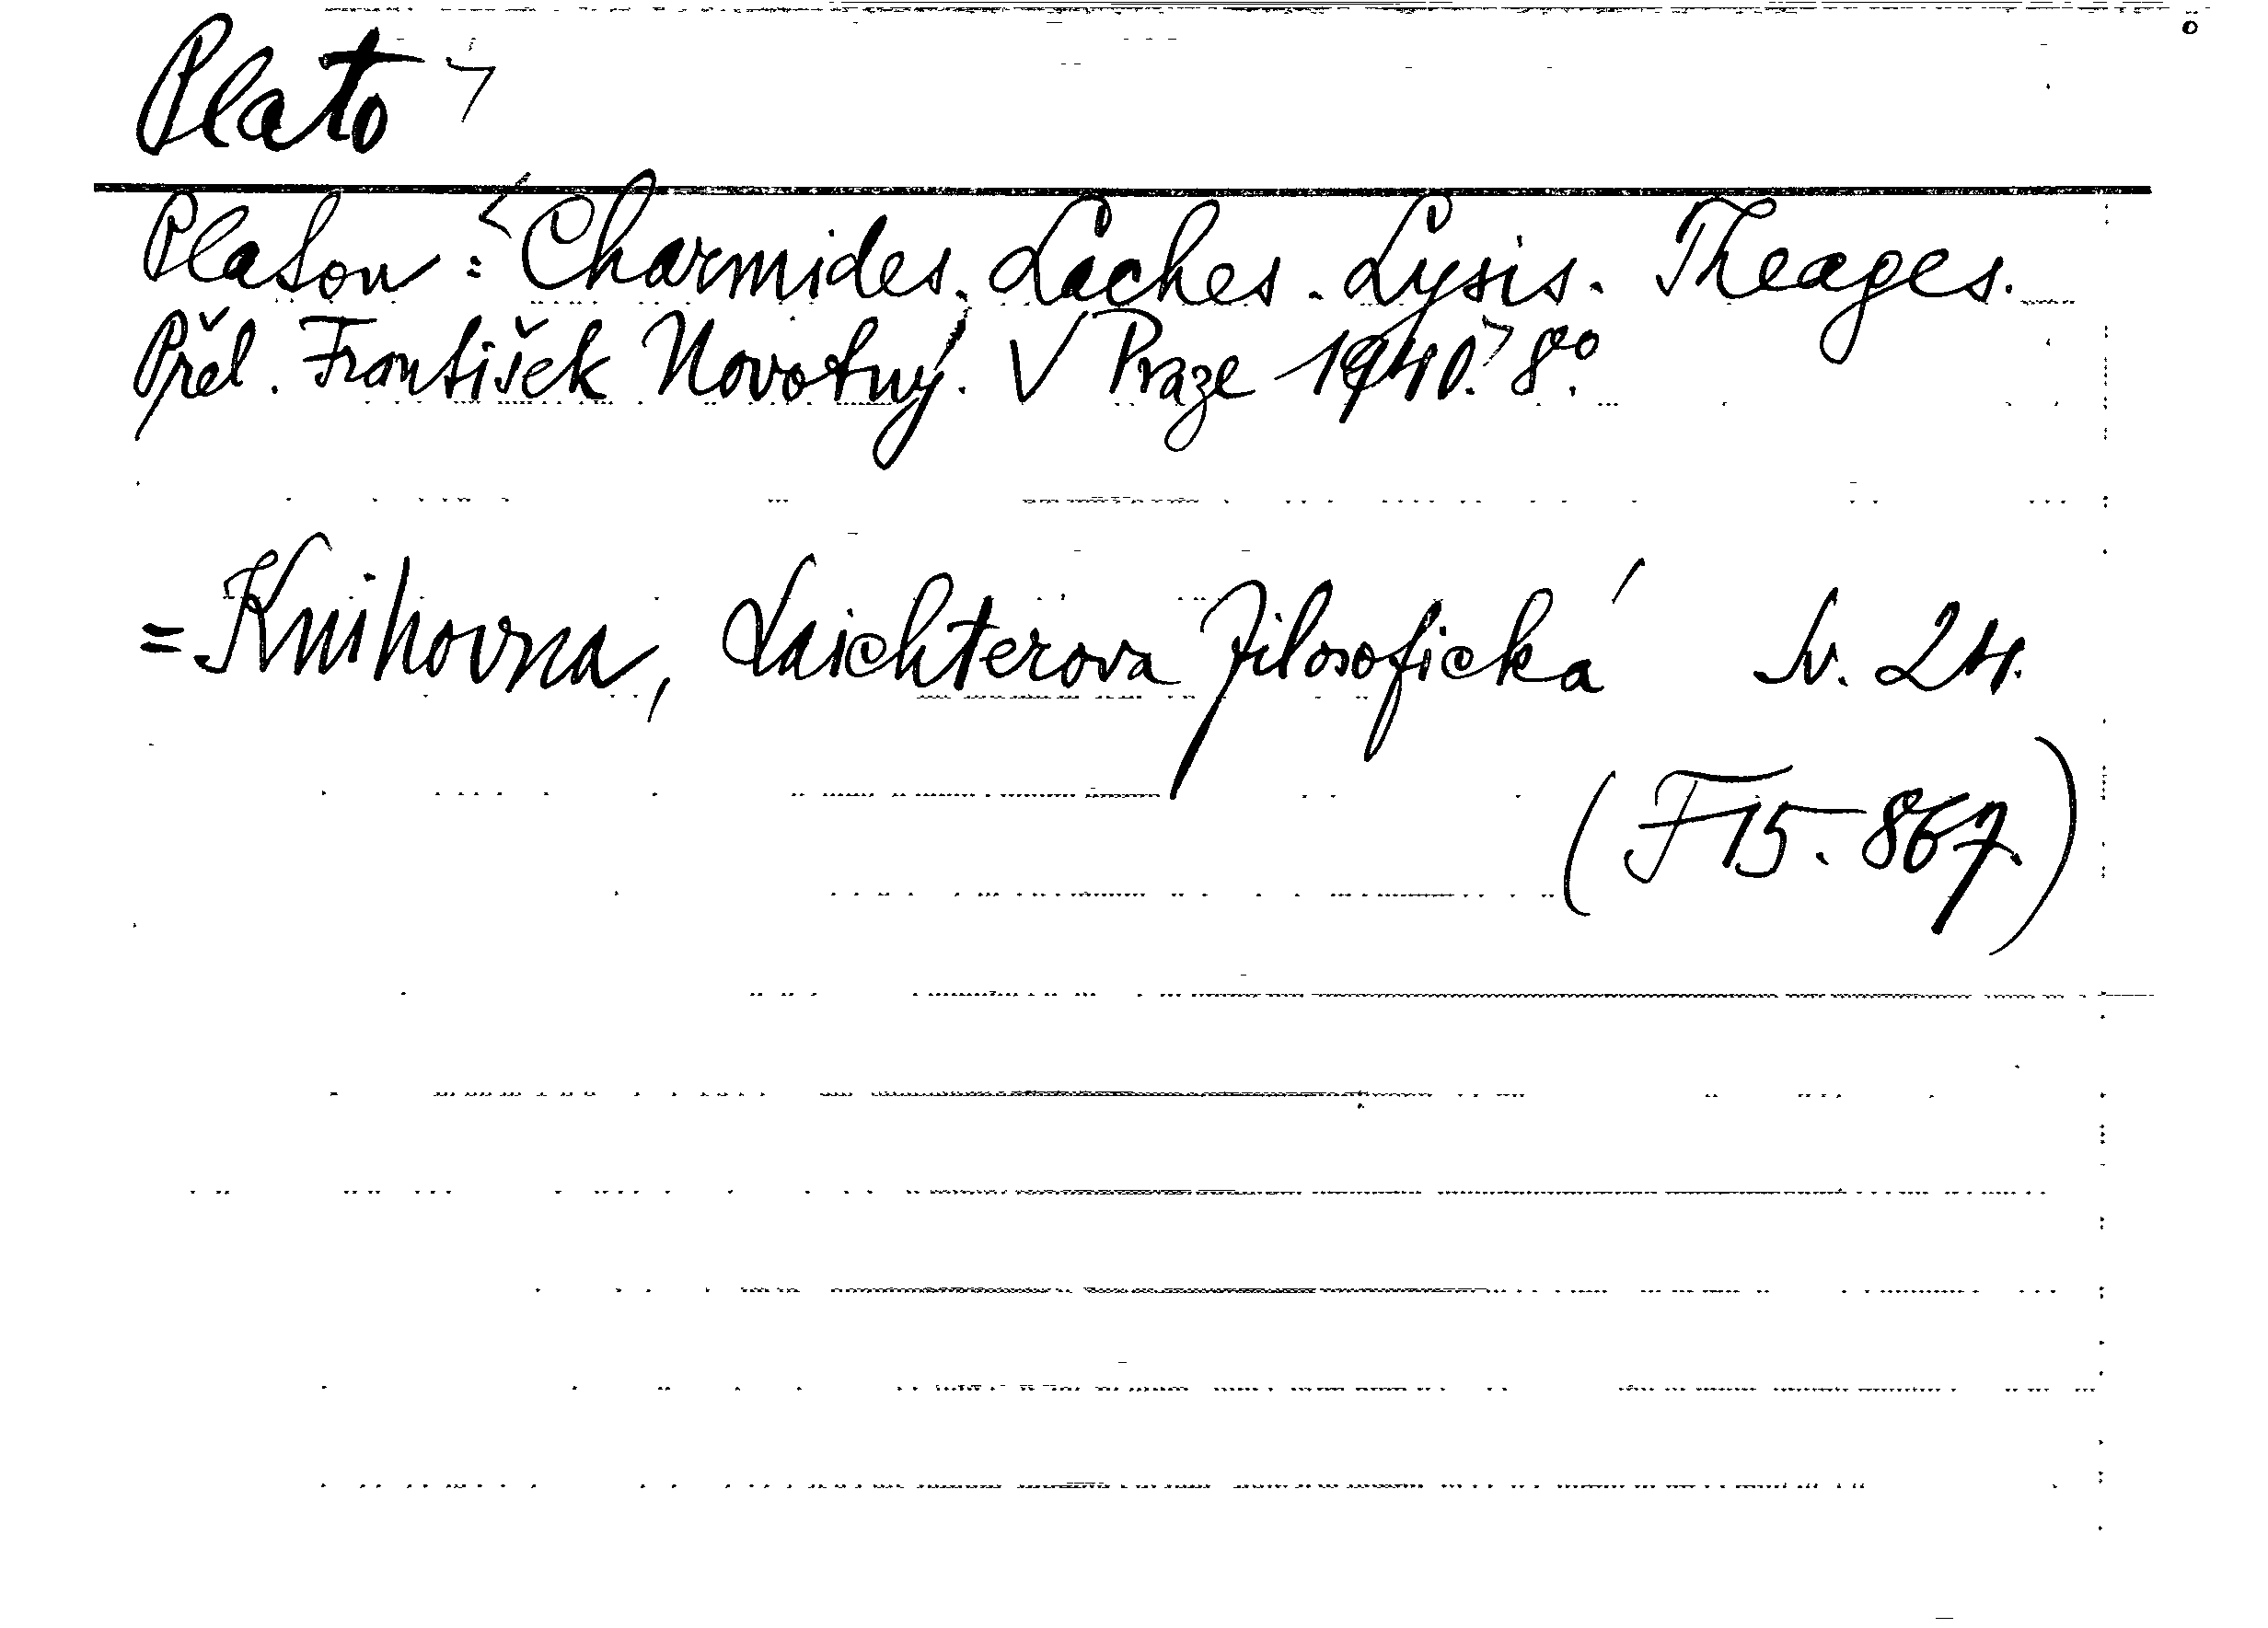 Plato
Platon: Charmides. Laches. Lysis. Theages.
Přel. František Novotný. V Praze 1940. 8°.
= Knihovna, Laichterova filosofická sv. 24.
(F 15.867.)